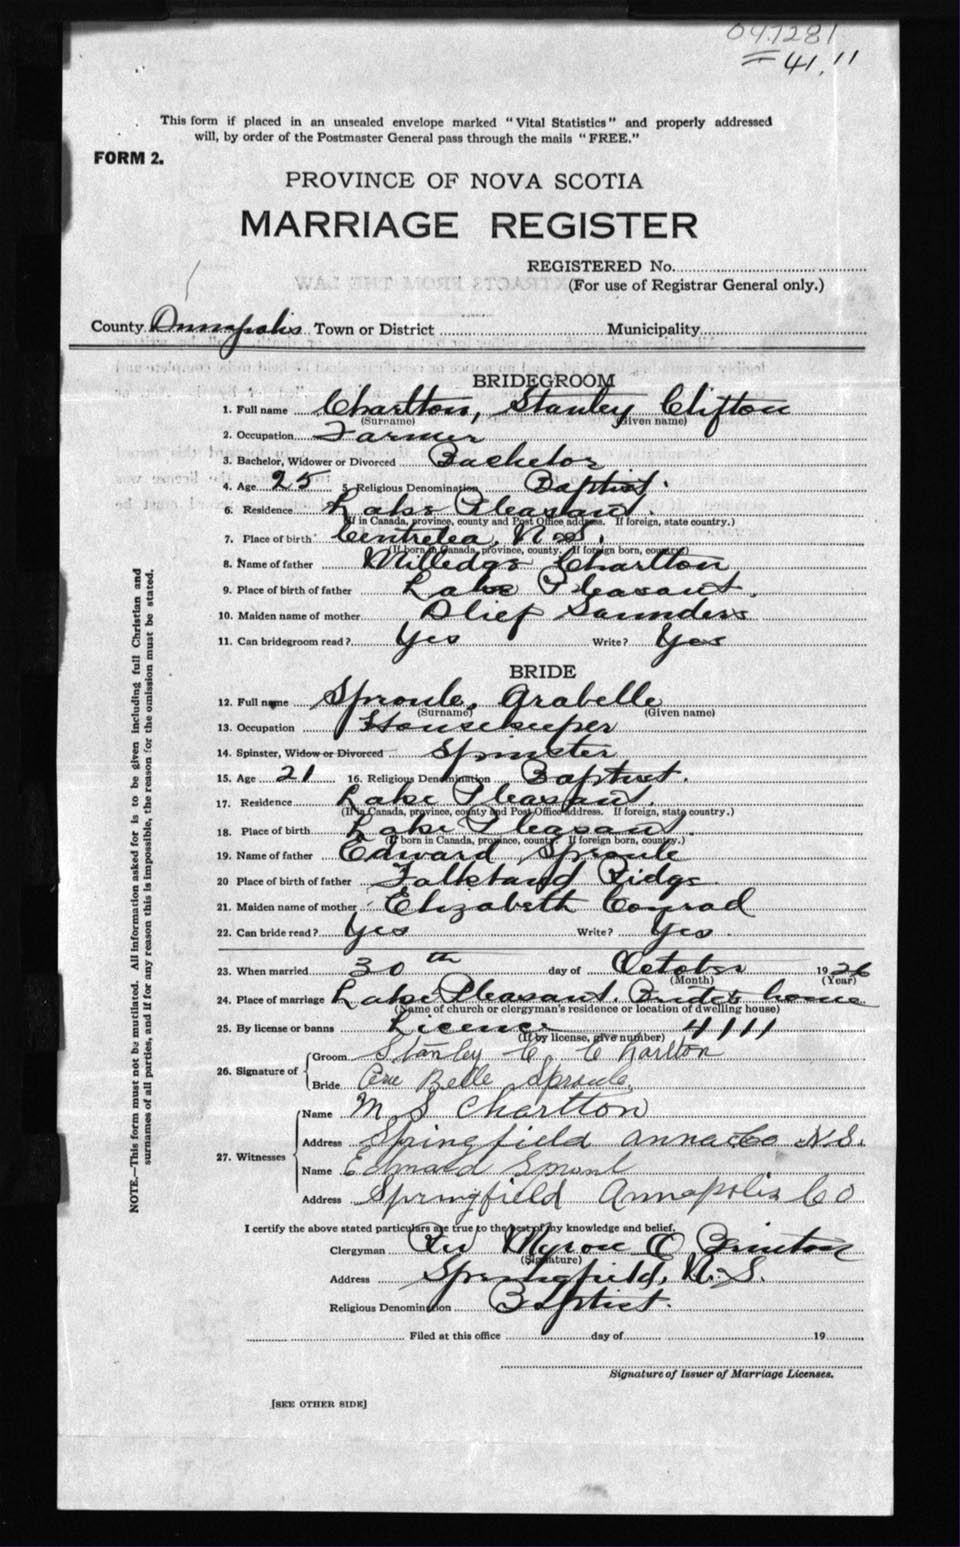 047281
= 41.11
This form if placed in an unsealed envelope marked "Vital Statistics" and properly addressed
will, by order of the Postmaster General pass through the mails "FREE."
FORM 2.
PROVINCE OF NOVA SCOTIA
MARRIAGE REGISTER
REGISTERED No.
(For use of Registrar General only.)
County Annapolis Town or District Municipality
BRIDEGROOM
1. Full name Charlton, Stanley Clifton
(Surname) (Given name)
2. Occupation Farmer
3. Bachelor, Widower or Divorced Bachelor
4. Age 25 5. Religious Denomination Baptist.
6. Residence Lake Pleasant.
(If in Canada, province, county and Post Office address. If foreign, state country.)
7. Place of birth Centrelea, N.S.
(If born in Canada, province, county. If foreign born, country)
8. Name of father Milledge Charlton
9. Place of birth of father Lake Pleasant.
10. Maiden name of mother Saunders
11. Can bridegroom read? Yes Write? Yes
BRIDE
12. Full name Sproule, Arabelle
(Surname) (Given name)
13. Occupation Housekeeper
14. Spinster, Widow or Divorced Spinster
15. Age 21 16. Religious Denomination Baptist.
17. Residence Lake Pleasant.
(If in Canada, province, county and Post Office address. If foreign, state country.)
18. Place of birth Lake Pleasant.
(If born in Canada, province, county. If foreign born, country.)
19. Name of father Edward Sproule
20 Place of birth of father Falkland Ridge.
21. Maiden name of mother Elizabeth Conrad
22. Can bride read? Yes Write? Yes.
23. When married 30th day of October 1926
(Month) (Year)
24. Place of marriage Lake Pleasant. Bride's home
(Name of church or clergyman's residence or location of dwelling house)
25. By license or banns Licence 4111
(If by license, give number)
26. Signature of Groom Stanley C. Charlton
Bride Belle Sproule.
27. Witnesses
Name M S Charlton
Address Springfield Anna Co N.S.
Name
Address Springfield Annapolis Co
I certify the above stated particulars are true to the best of my knowledge and belief.
Clergyman Rev Myron O Brinton
(Signature)
Address Springfield, N.S.
Religious Denomination Baptist.
Filed at this office day of 19
Signature of Issuer of Marriage Licenses.
[SEE OTHER SIDE]
NOTE.—This form must not be mutilated. All information asked for is to be given including full Christian and
surnames of all parties, and if for any reason this is impossible, the reason for the omission must be stated.